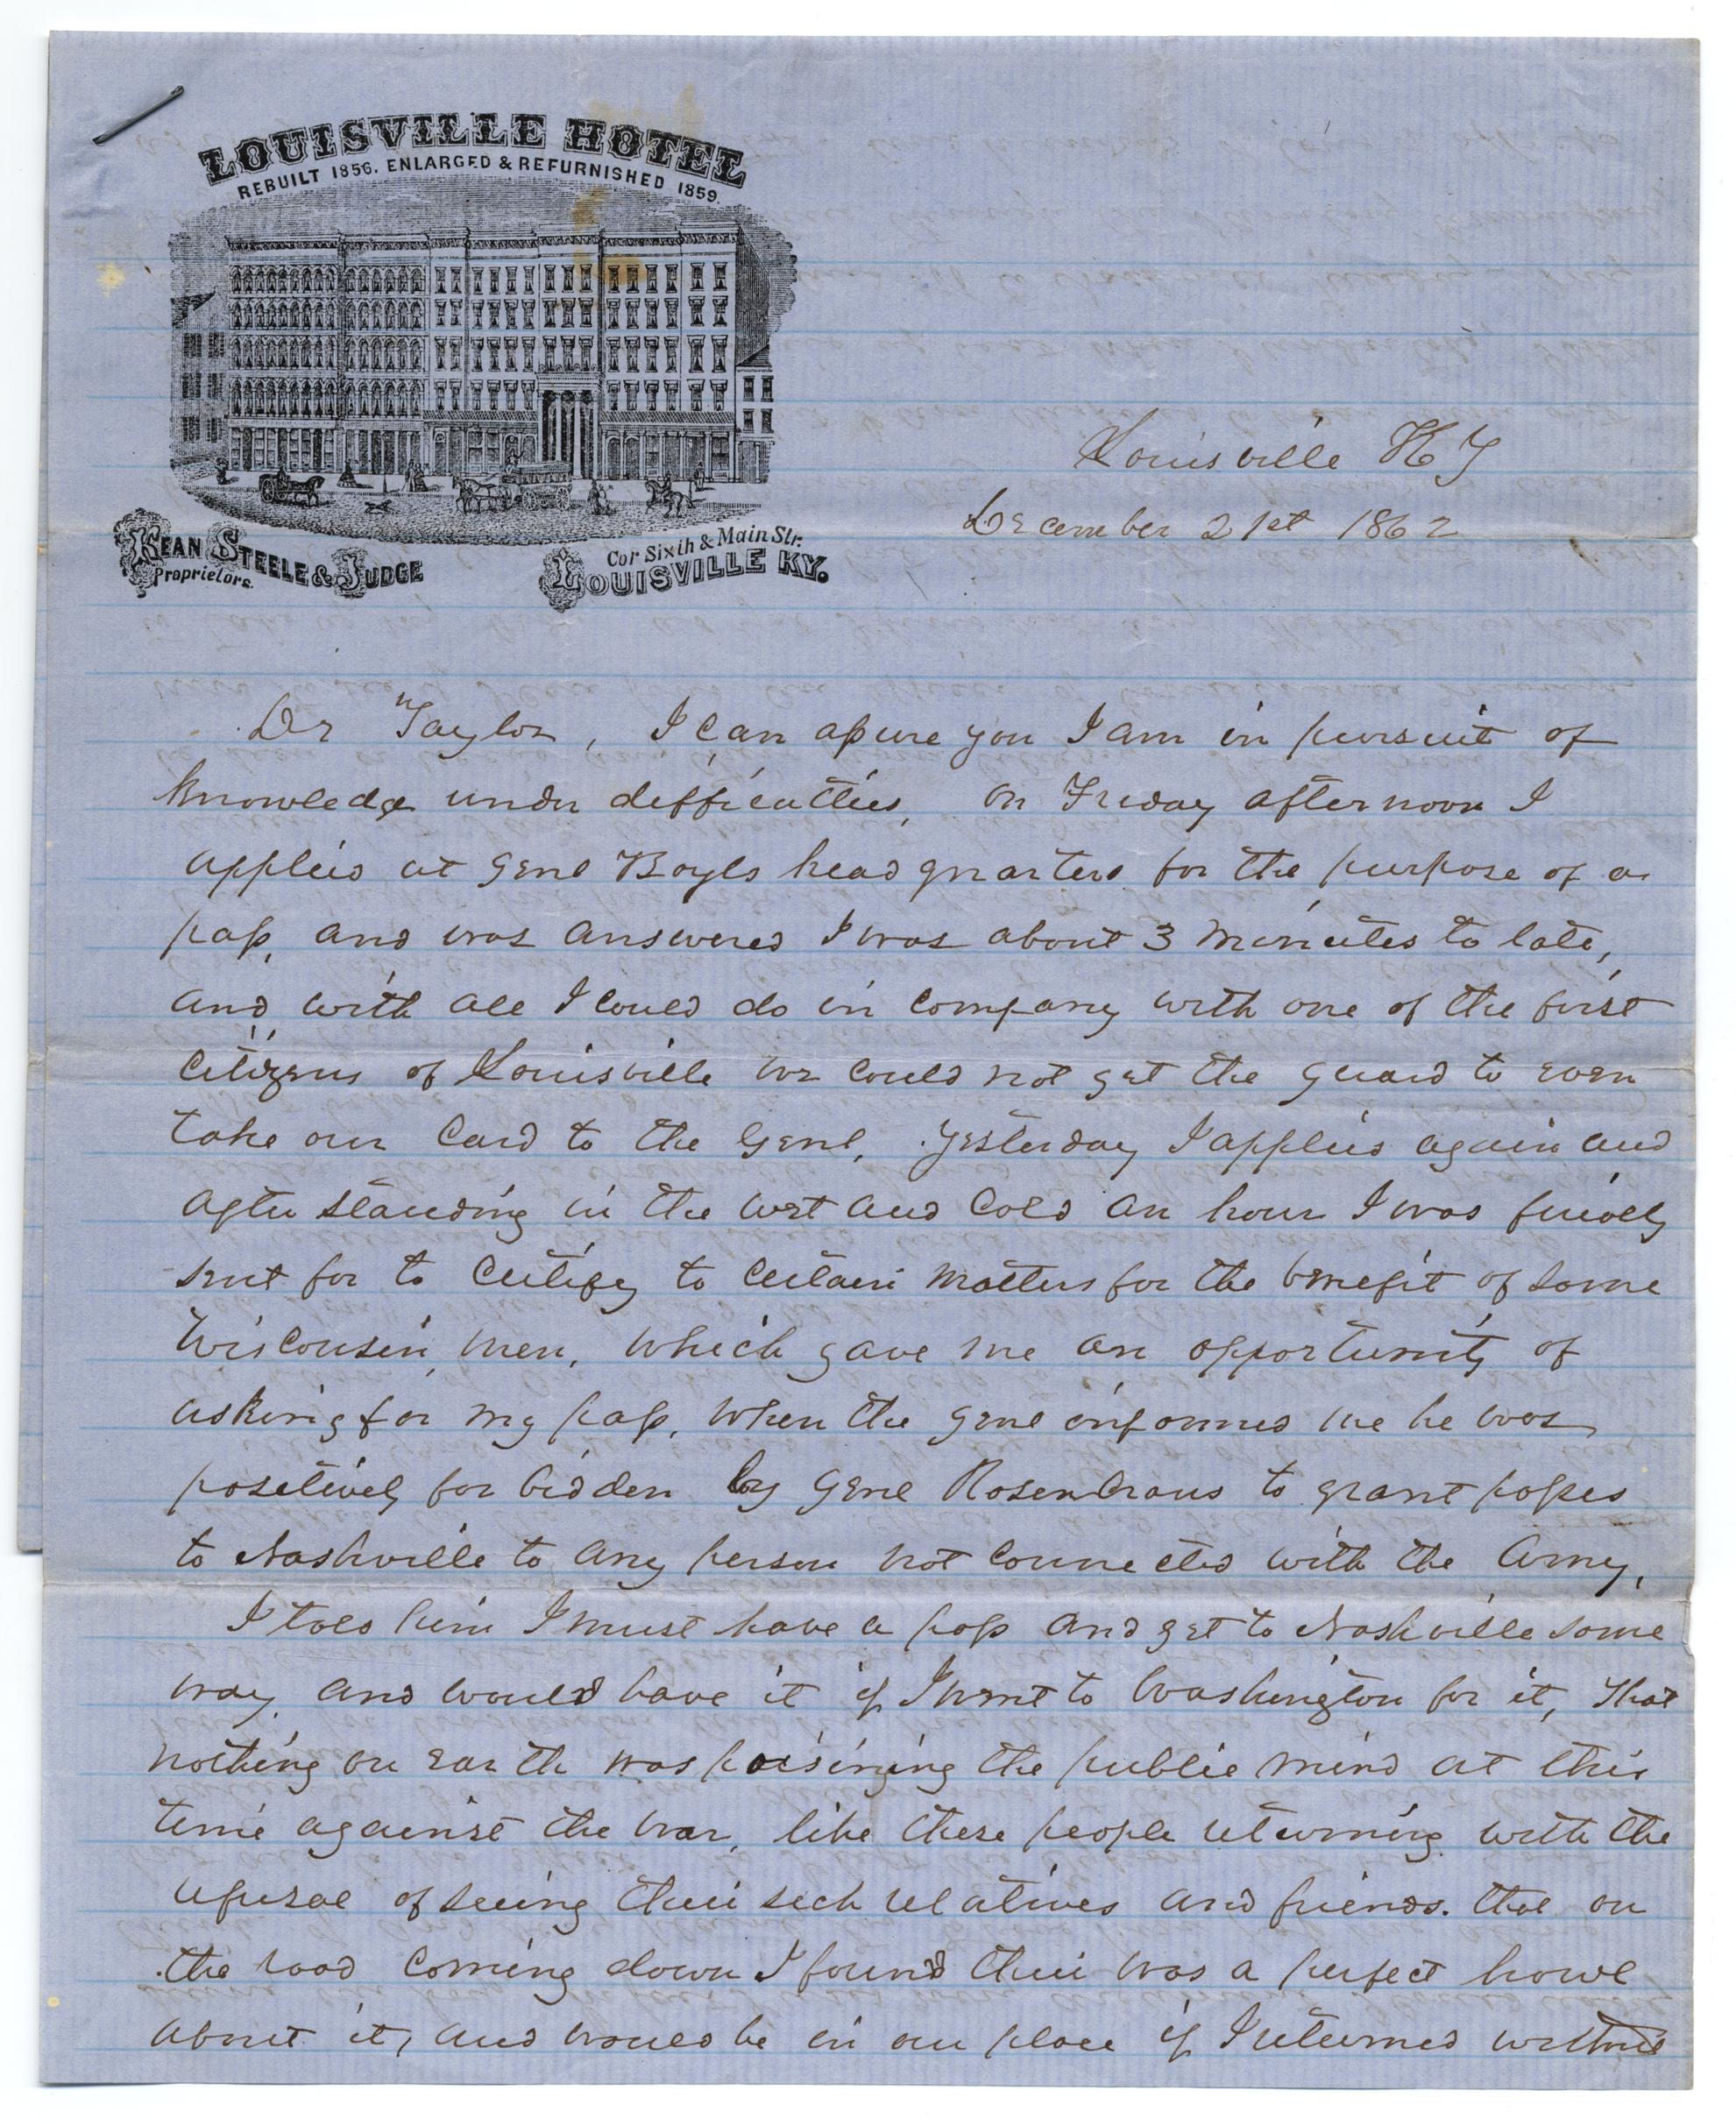 LOUISVILLE HOTEL
REBUILT 1856. ENLARGED & REFURNISHED 1859.
KEAN STEELE & JUDGE
Proprietors.
Cor Sixth & Main Str.
LOUISVILLE KY.
Louisville Ky
December 21st 1862
Dr Taylor, I can assure you I am in pursuit of
knowledge under difficulties, on Friday afternoon I
applied at Genl Boyls head quarters for the purpose of a
pass, and was answered I was about 3 minutes to late,
and with all I could do in company with one of the first
citizens of Louisville we could not get the guard to even
take our card to the Genl, yesterday I applied again and
after standing in the wet and cold an hour I was finally
sent for to certify to certain matters for the benefit of some
Wisconsin men, which gave me an opportunity of
asking for my pass, when the genl informed me he was
positively for bidden by Genl Rosencraus to grant passes
to Nashville to any person not connected with the army,
I told him I must have a pass and get to Nashville some
way, and would have it if I went to Washington for it, that
nothing on earth was poisining the public mind at this
time against the war, like these people returning with the
refusal of seeing their sick relatives and friends. that on
the road coming down I found their was a perfect howl
about it, and would be in our place if I returned without